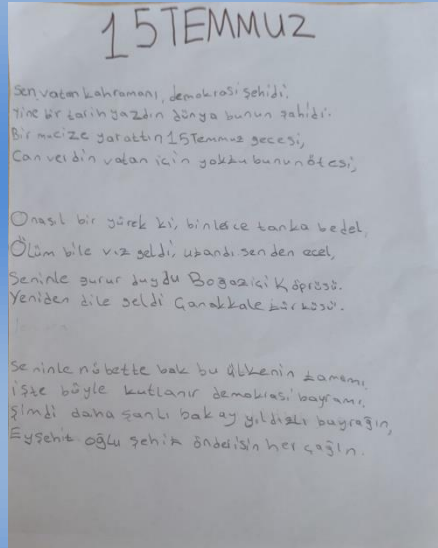 15 TEMMUZ
Sen, vatan kahramanı, demokrasi şehidi.
Yine bir tarih yazdın dünya bunun şahidi.
Bir mucize yarattın 15 Temmuz gecesi,
Can verdin vatan için yoktu bunun ötesi,
O nasıl bir yürek ki, binlerce tanka bedel,
Ölüm bile vız geldi, utandı senden ecel,
Seninle gurur duydu Boğaziçi Köprüsü.
Yeniden dile geldi Çanakkale türküsü.
Seninle nöbette bak bu ülkenin tamamı,
işte böyle kutlanır demokrasi bayramı,
Şimdi daha şanlı bak ay yıldızlı bayrağın,
Ey şehit oğlu şehit önderisin her çağın.